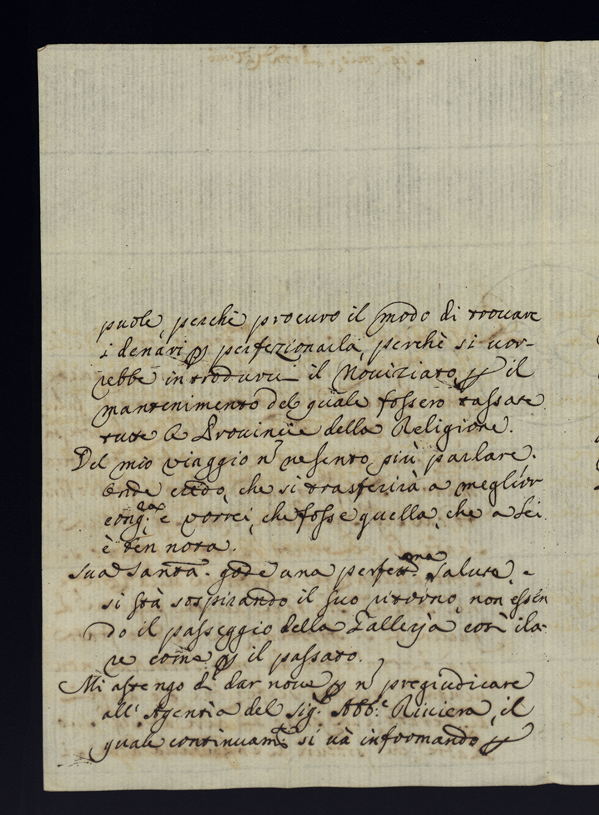 puole, perche procuro il modo di trovare
i denari p perfezionarla, perchè si vor-
rebbe introdurvi il Noviziato, p il
mantenimento del quale fossero tassate
tutte le Provincie della Religione.
Del mio viaggio nº ne sento più parlare.
onde credo, che si trasferirà a meglior
cong.ra e vorrei, che fosse quella, che a Lei
è ben nota.
Sua Santà. gode una perfettma salute, e
si stà sospirando il suo ritorno, non essen
do il passeggio della Galleria così ila-
re come p il passato.
Mi astengo di dar nove p nº pregiudicare
all' Agentia del Sigr Abb.e Riviera, il
quale continuamte si và informando p